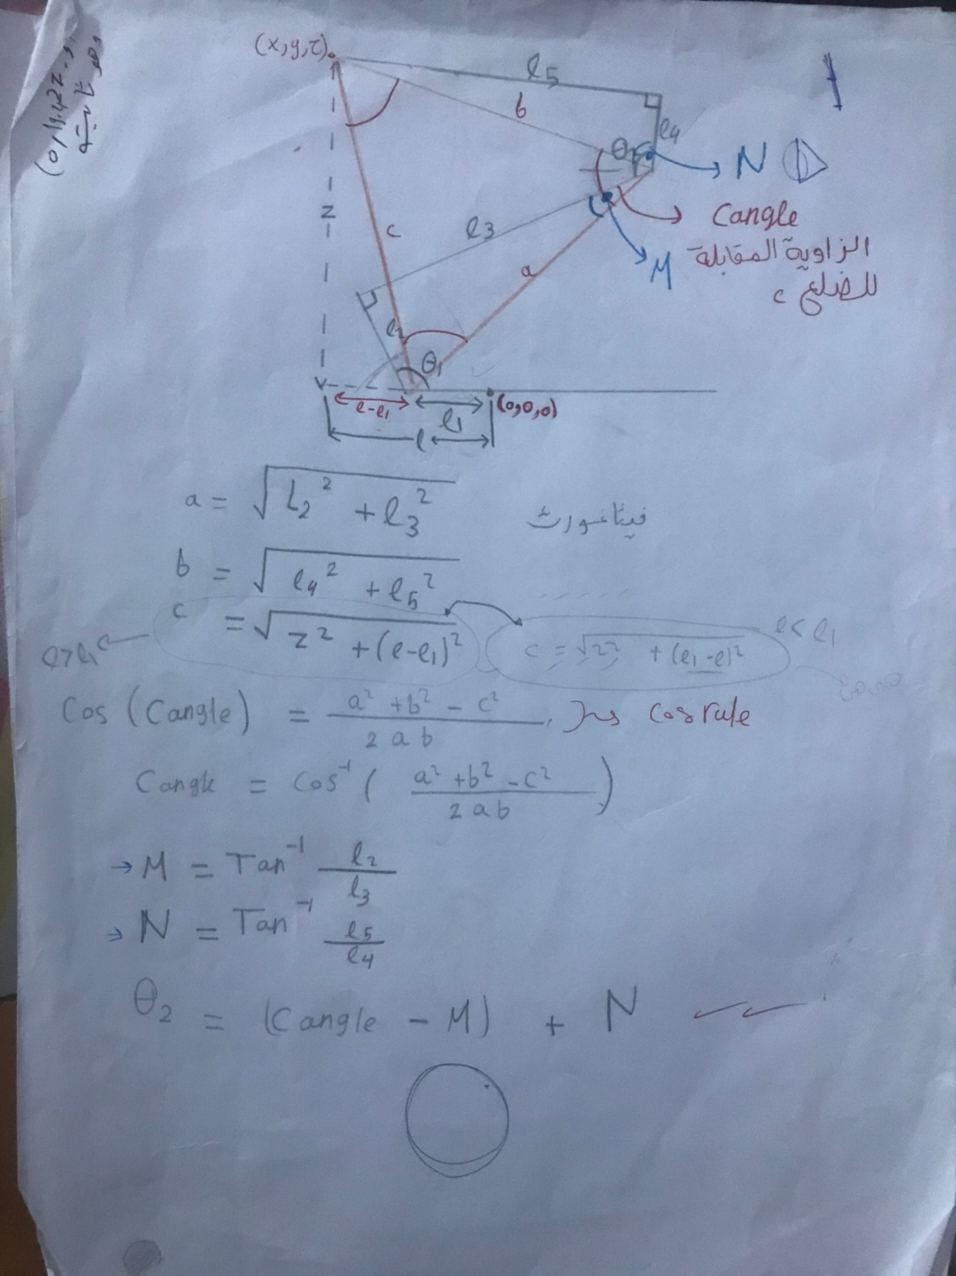 (x,y,z)
l5
b
l4
N
Cangle
الزاوية المقابلة
للضلع c
M
z
c
l3
a
l2
θ1
l-l1
l1
(0,0,0)
l
a = √(L2² + l3²)
فيثاغورث
b = √(l4² + l5²)
c = √(z² + (l-l1)²)
l>l1
c = √(z² + (l1-l)²)
l<l1
Cos (Cangle) = (a² + b² - c²) / (2 a b)
Cos rule
Cangle = Cos⁻¹ ( (a² + b² - c²) / (2 a b) )
→ M = Tan⁻¹ l2/l3
→ N = Tan⁻¹ l5/l4
θ2 = (Cangle - M) + N